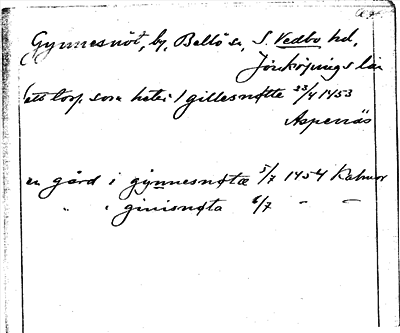 Gynnesnöt, by, Bellö sn, S. Vedbo hd,
Jönköpings län
ett torp som heter i gillesnøtte 23/4 1453
Aspenäs
en gård i gynnesnøtæ 5/7 1454 Kalmar
" " ginisnøta 6/7 " "